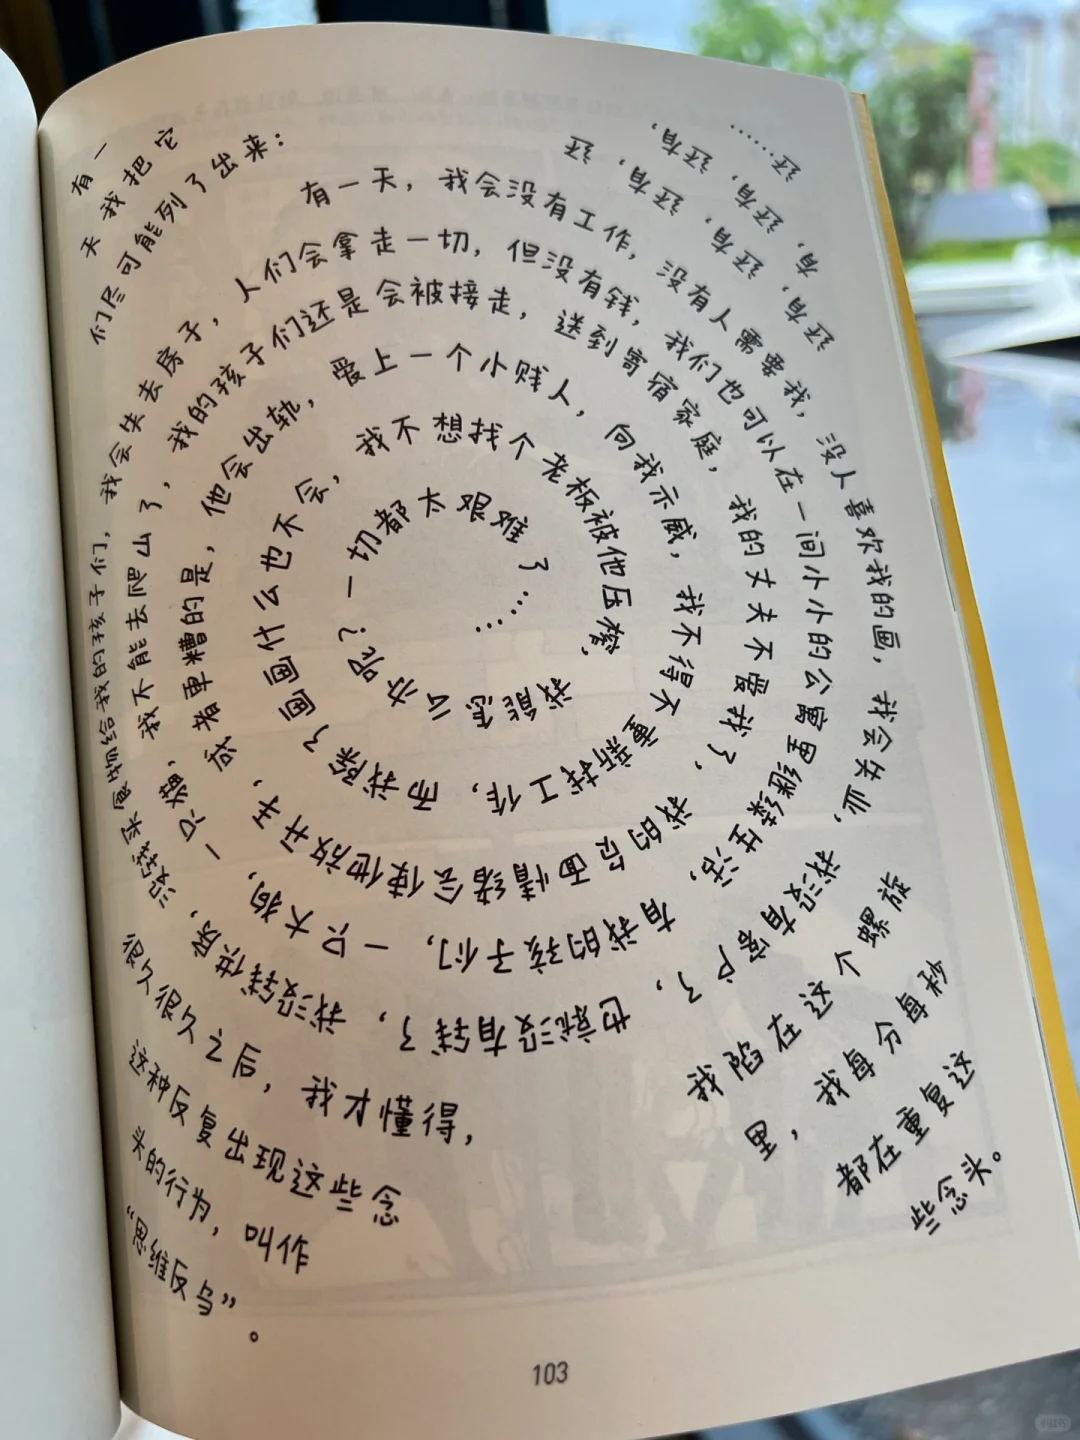 有一
天我把它
们尽可能列了出来：
有一天，我会没有工作，没有人需要我，没人喜欢我的画，我会失业，我没有客户了，也就没有钱了，我没钱供房，没钱买食物给我的孩子们，我会失去房子，人们会拿走一切，但没有钱，我们也可以在一间小小的公寓里继续生活，有我的孩子们，一只大狗，一只猫，我不能去爬山了，我的孩子们还是会被接走，送到寄宿家庭，我的丈夫不爱我了，我的负面情绪会使他放开手，或者更糟的是，他会出轨，爱上一个小贱人，向我示威，我不得不重新找工作，而我除了画画什么也不会，我不想找个老板被他压榨，我能怎么办呢？一切都太艰难了……
还有，还有，还有，还有，
还有，还有，有，
还……
我陷在这个螺旋
里，我每分每秒
都在重复这
些念头。
很久很久之后，我才懂得，
这种反复出现这些念
头的行为，叫作
“思维反刍”。
103